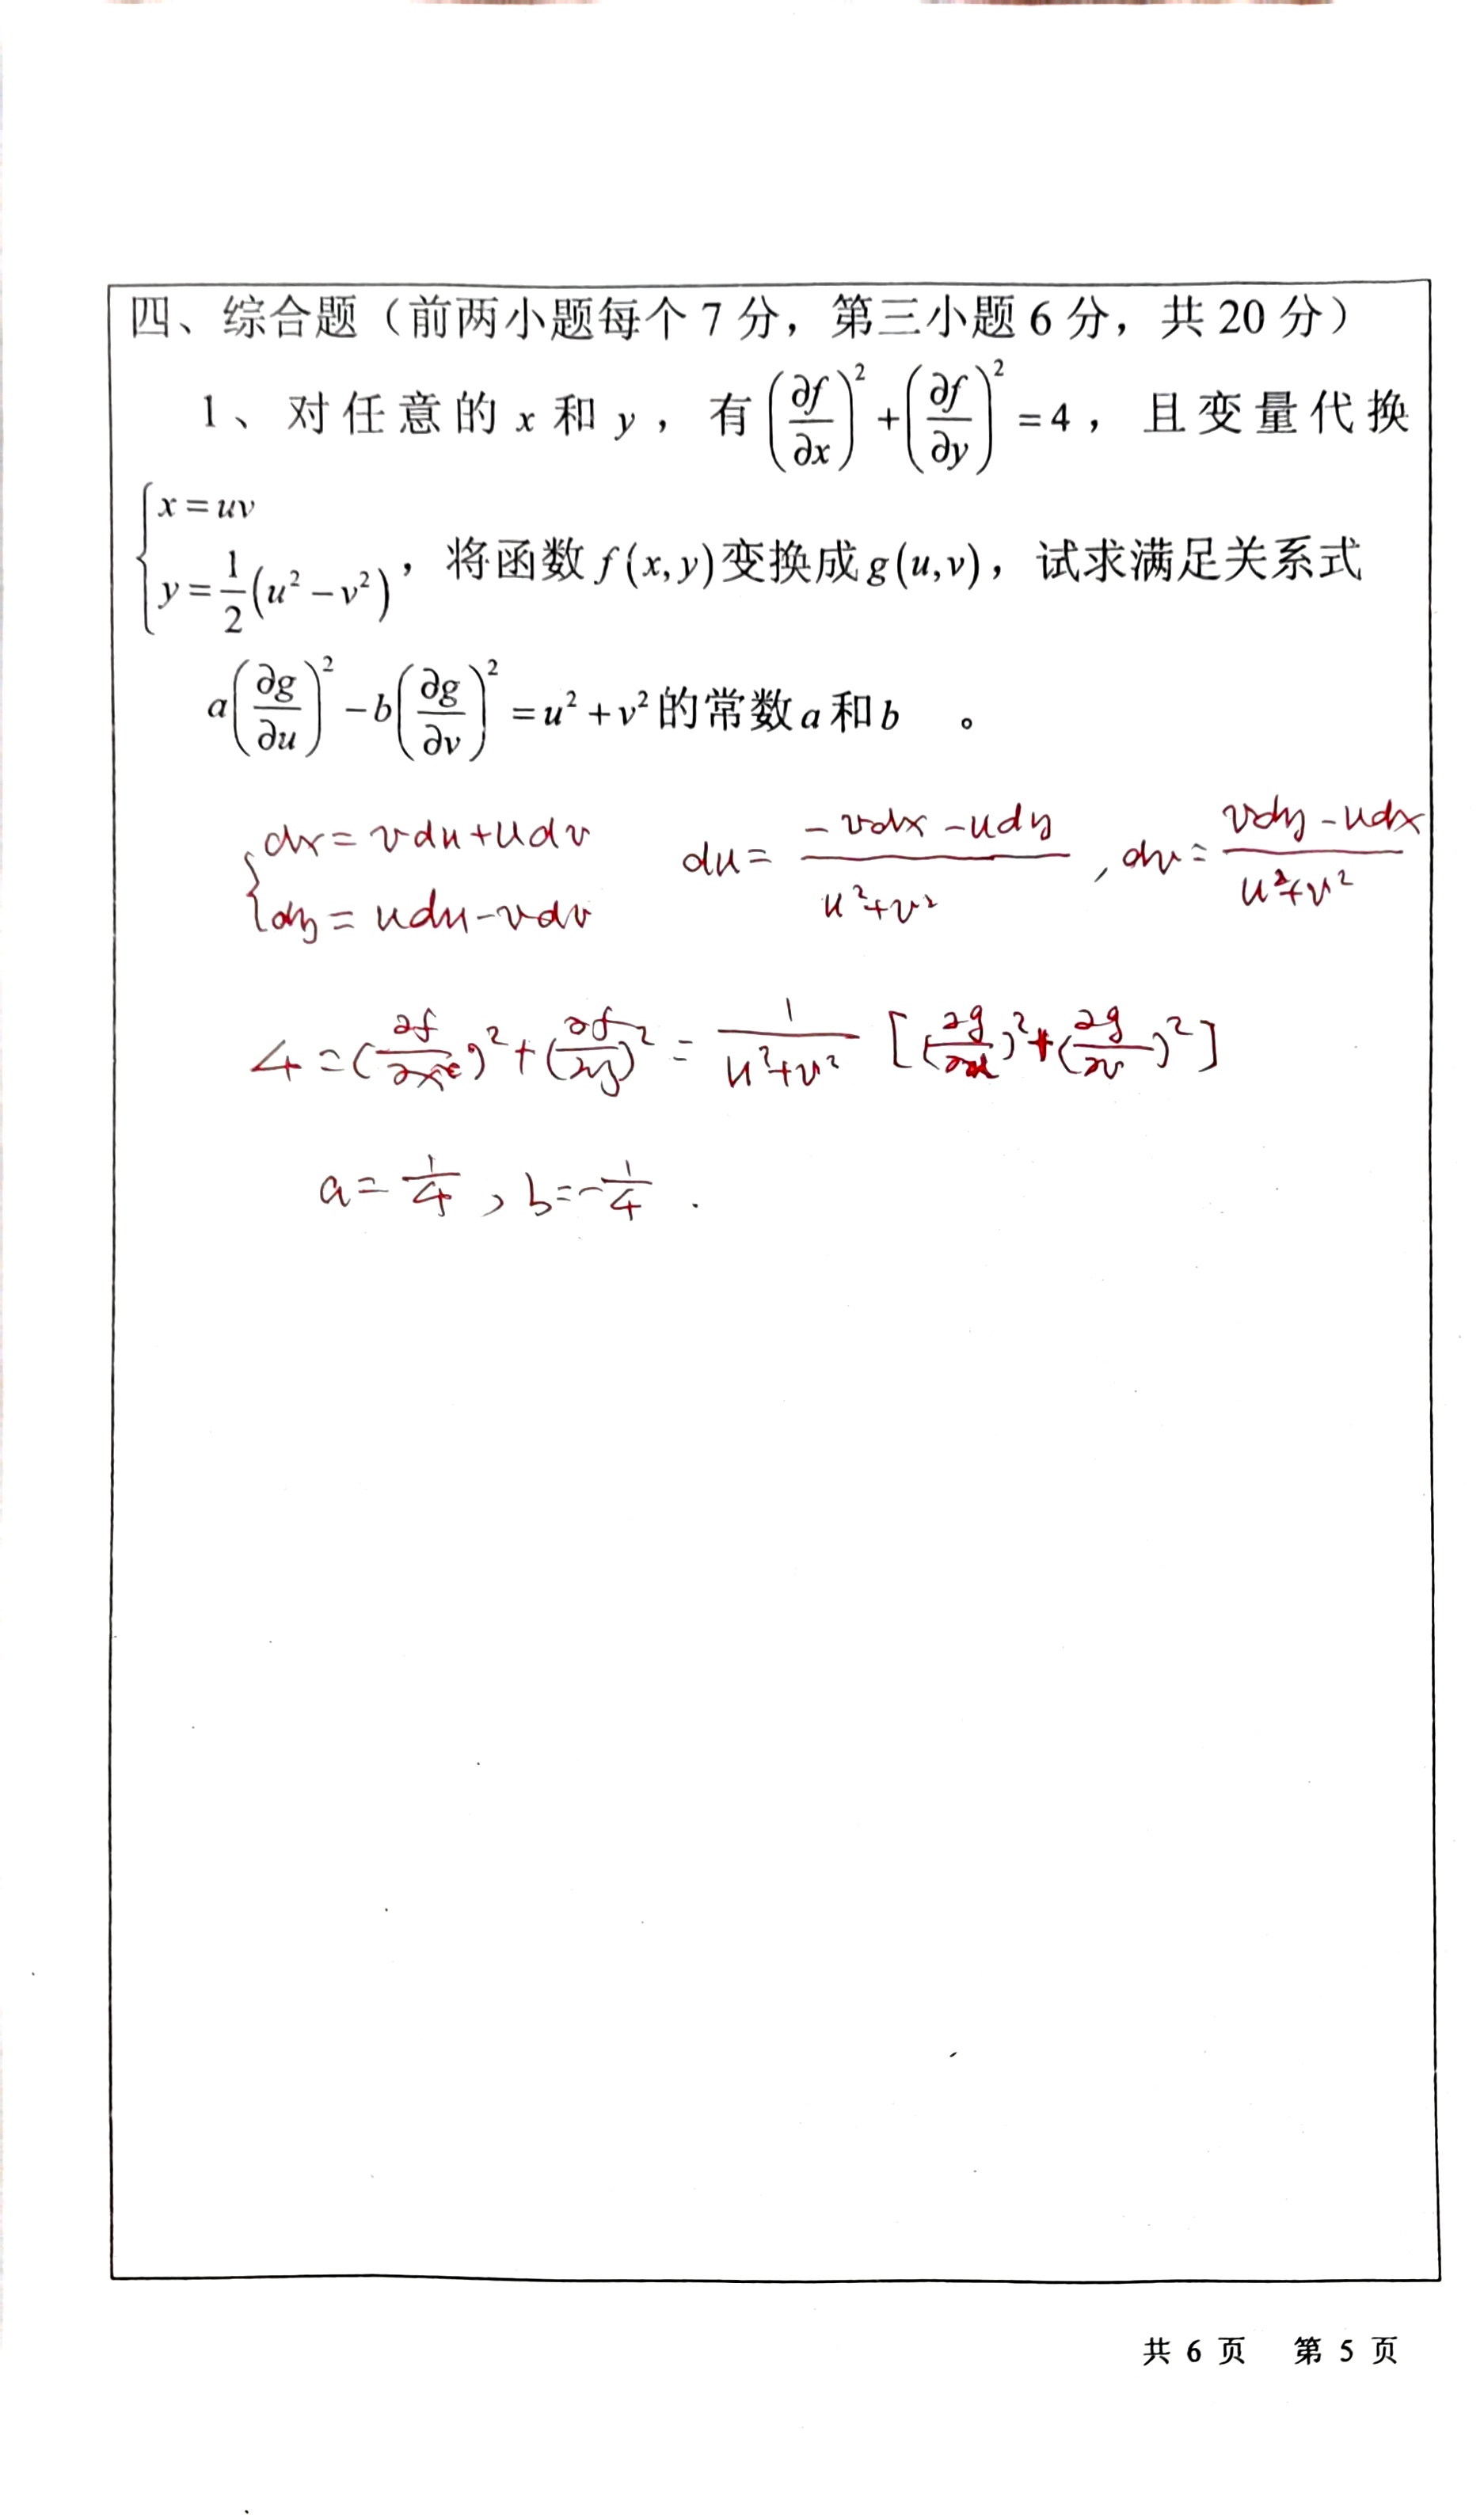 四、综合题（前两小题每个 7 分，第三小题 6 分，共 20 分）
1、对任意的 x 和 y，有 (∂f/∂x)² + (∂f/∂y)² = 4，且变量代换
{ x = uv
y = 1/2 (u² − v²) ，将函数 f(x, y) 变换成 g(u, v)，试求满足关系式
a(∂g/∂u)² − b(∂g/∂v)² = u² + v² 的常数 a 和 b 。
{ dx = vdu + udv
dy = udu − vdv
du = (−vdx − udy)/(u² + v²) , dv = (vdy − udx)/(u² + v²)
4 = (∂f/∂x)² + (∂f/∂y)² = 1/(u² + v²) [(∂g/∂u)² + (∂g/∂v)²]
a = 1/4 , b = −1/4 .
共 6 页 第 5 页